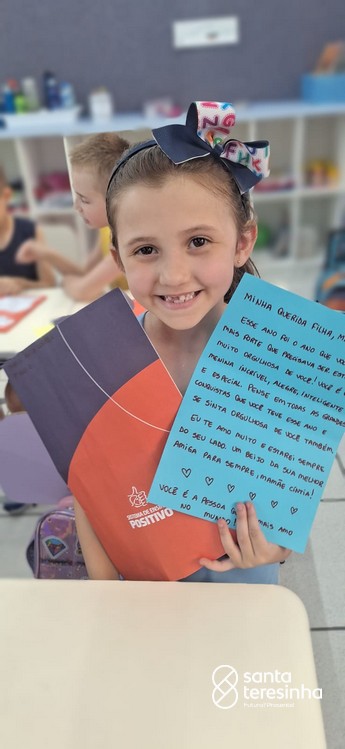 MINHA QUERIDA FILHA,
ESSE ANO FOI O ANO QUE VO
MAIS FORTE QUE PRECISAVA SER. EST
MUITO ORGULHOSA DE VOCÊ! VOCÊ É
MENINA INCRÍVEL, ALEGRE, INTELIGENTE
E ESPECIAL. PENSE EM TODAS AS GRANDES
CONQUISTAS QUE VOCÊ TEVE ESSE ANO E
SE SINTA ORGULHOSA DE VOCÊ TAMBÉM.
EU TE AMO MUITO E ESTAREI SEMPRE
DO SEU LADO. UM BEIJO DA SUA MELHOR
AMIGA PARA SEMPRE, MAMÃE CÍNTIA!
VOCÊ É A PESSOA QUE MAIS AMO
NO MUNDO!
SISTEMA DE ENSINO
POSITIVO
santa
teresinha